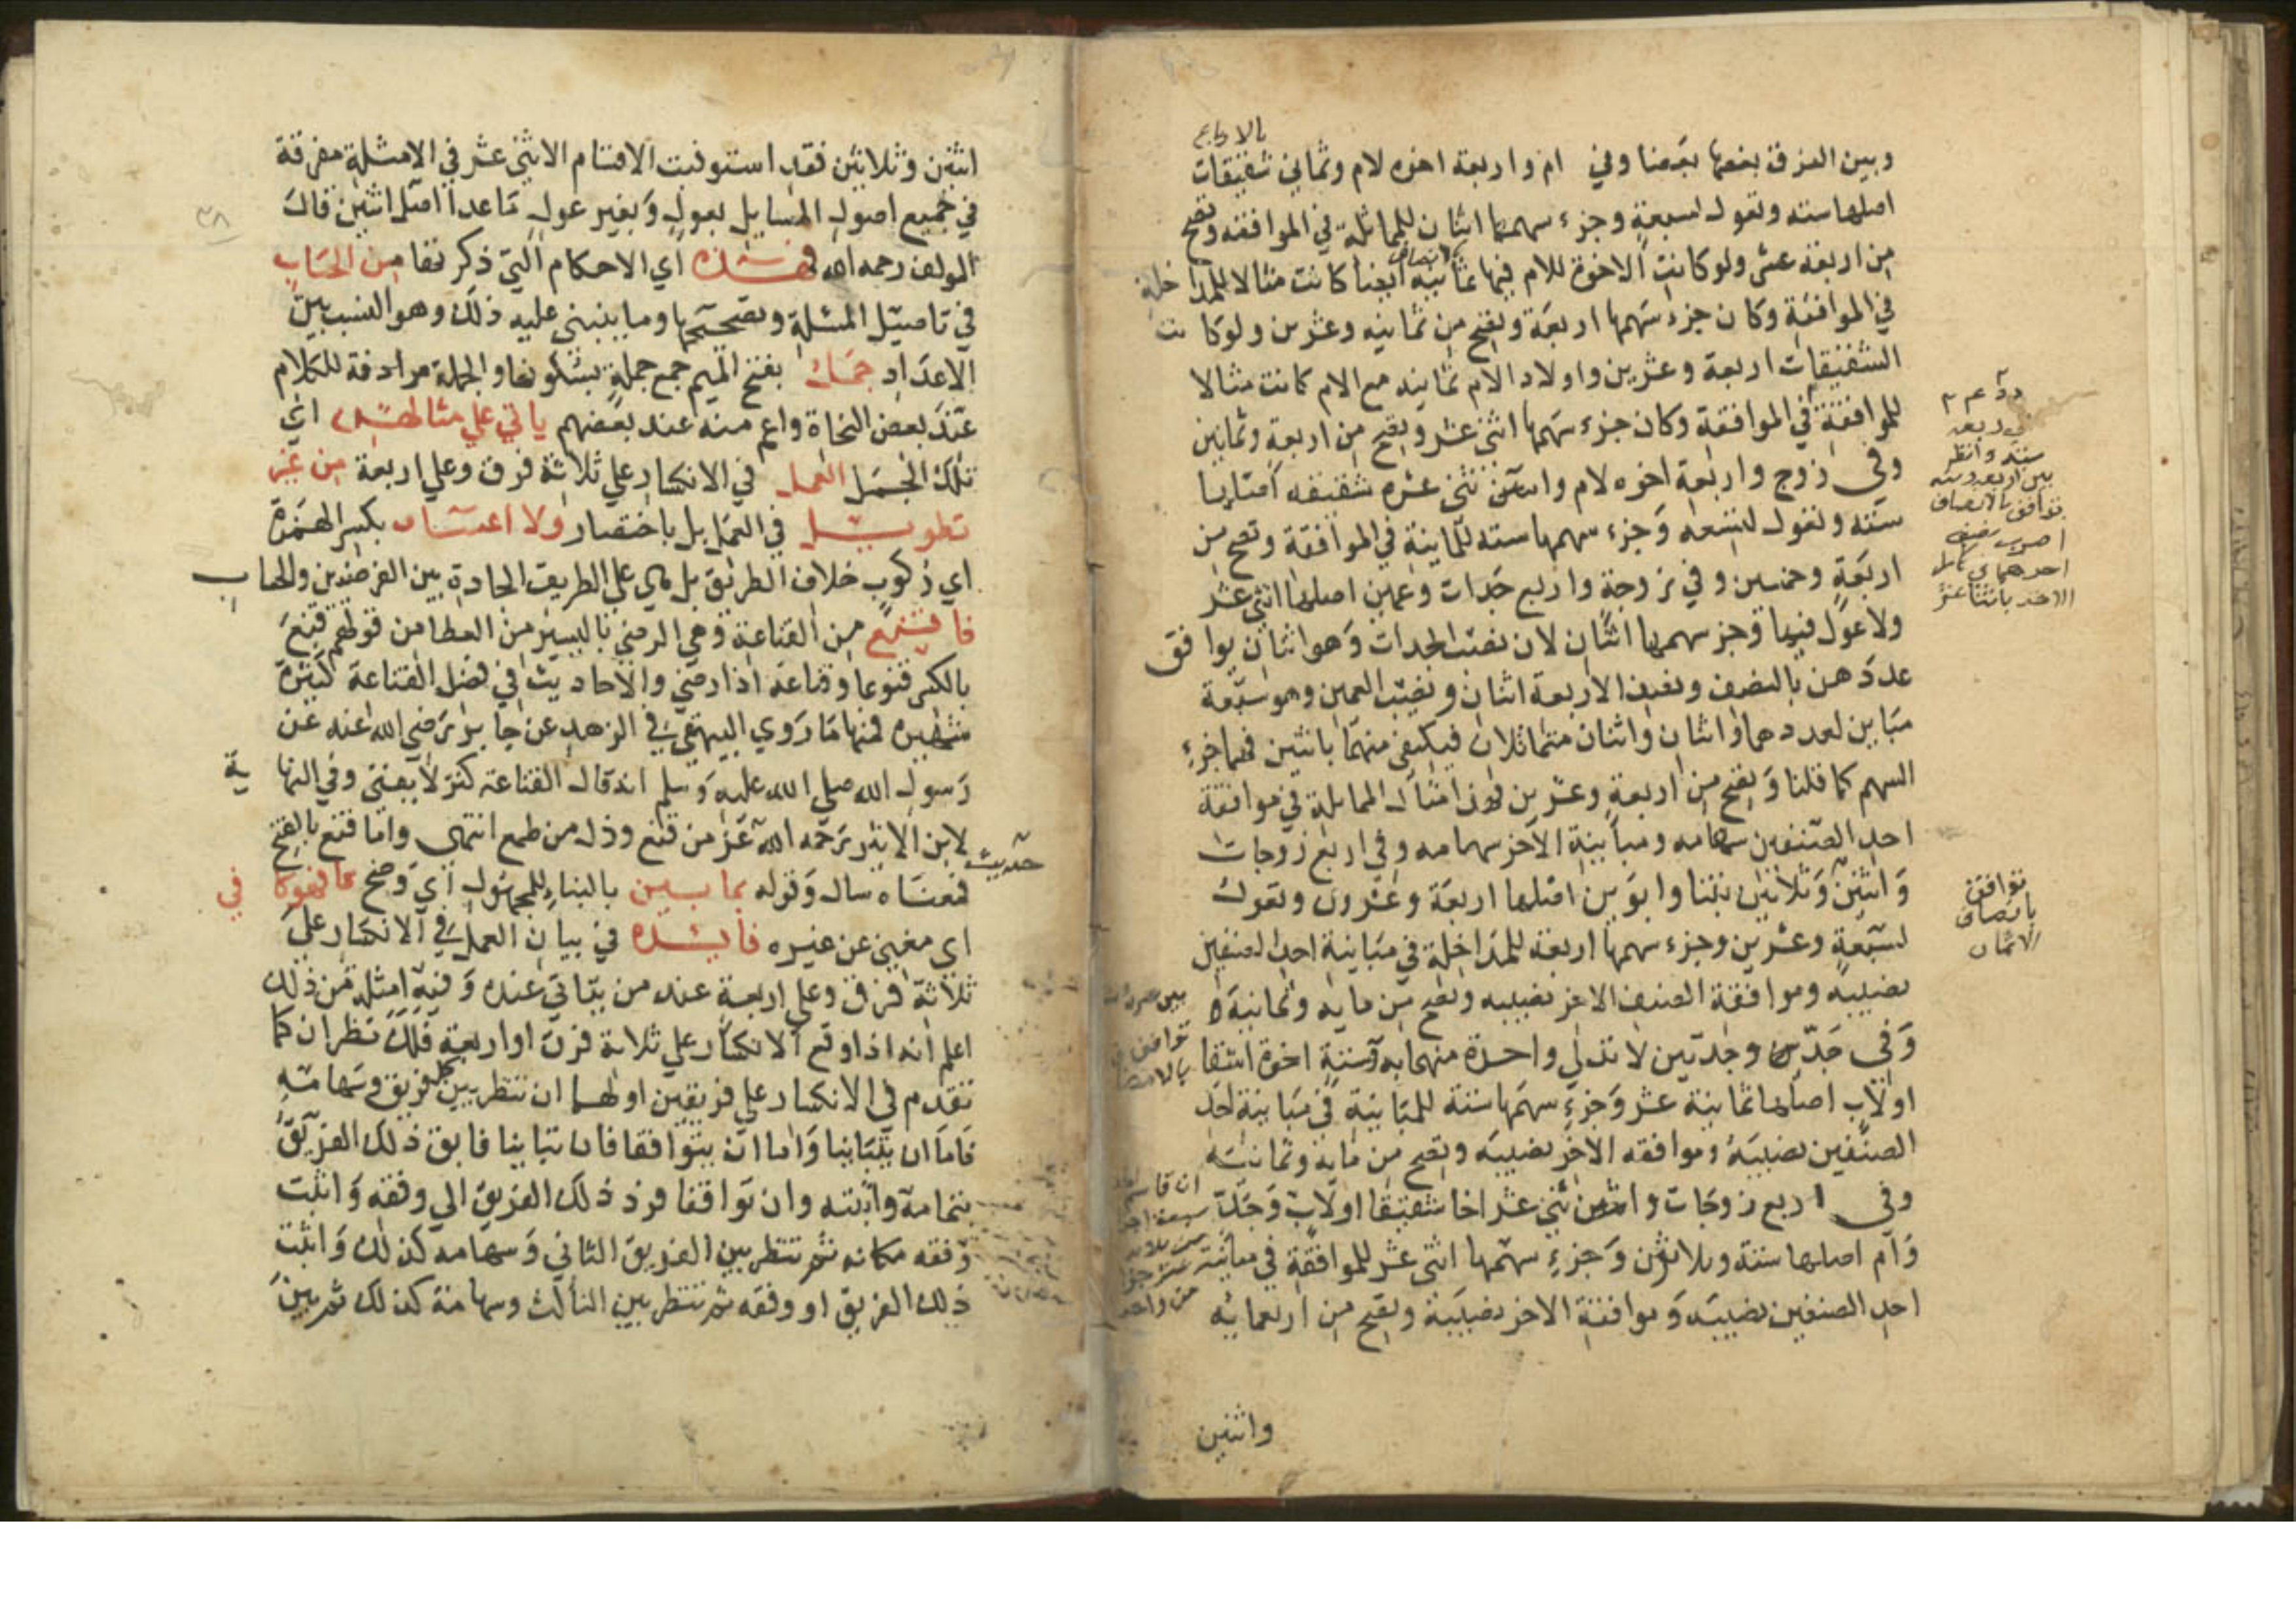 بالارباع
وبين الفرق بعضها بعضا وفي ام واربعة اخوه لام وثماني شقيقات
اصلها سته وتعول لسبعة وجزء سهمها اثنان للمماثلة في الموافقه وتصح
من اربعة عشر ولو كانت الاخوة للام فيها ثمانية ايضا كانت مثالا للمداخلة
في الموافقة وكان جزء سهمها اربعة وتصح من ثمانيه وعشرين ولو كانت
الشقيقات اربعة وعشرين واولاد الام ثمانيه مع الام كانت مثالا
للموافقة في الموافقة وكان جزء سهمها اثنى عشر وتصح من اربعة وثمانين
وفي زوج واربعة اخوه لام واثنتى عشره شقيقه اصلها
سته وتعول لتسعه وجزء سهمها سته للمباينة في الموافقة وتصح من
اربعة وخمسين وفي زوجة واربع جدات وعمين اصلها اثنى عشر
ولا عول فيها وجزء سهمها اثنان لان نصيب الجدات وهو اثنان يوافق
عددهن بالنصف ونصف الاربعة اثنان ونصيب العمين وهو سبعة
مباين لعددهما اثنان واثنان متماثلان فيكتفى منهما باثنين فهما جزء
السهم كما قلنا وتصح من اربعة وعشرين فهذا مثال المماثلة في موافقة
احد الصنفين سهامه ومباينة الاخر سهامه وفي اربع زوجات
واثنين وثلاثين بنتا وابوين اصلها اربعة وعشرون وتعول
لسبعة وعشرين وجزء سهمها اربعة للمداخلة في مباينة احد الصنفين
نصيبه وموافقة الصنف الاخر نصيبه وتصح من مايه وثمانية
وفي جد وجدتين لا تدلي واحدة منهما به وستة اخوة اشقا
او لاب اصلها ثمانية عشر وجزء سهمها ستة للمباينة في مباينة احد
الصنفين نصيبه وموافقه الاخر نصيبه وتصح من ماية وثمانية
وفي اربع زوجات واثنى عشر اخا شقيقا او لاب وجد
وام اصلها ستة وثلاثون وجزء سهمها اثنى عشر للموافقة في مباينة
احد الصنفين نصيبه وموافقة الاخر نصيبه وتصح من اربعمائه
واثنين
سته وانظر
بين اربعه وسته
توافق بالانصاف
اضرب نصف
احدهما في كامل
الاخر باثنا عشر
توافق
بانصاف
الاثمان
اثنين وثلاثين فقد استوفيت الاقسام الاثنى عشر في الامثلة مفرقة
في جميع اصول المسايل بعول وبغير عول ما عدا اصل اثنين قال
المولف رحمه الله فهذه اي الاحكام التي ذكرتها من الحساب
في تاصيل المسئلة وتصحيحها وما ينبني عليه ذلك وهو النسب بين
الاعداد جمل بفتح الميم جمع جملة بسكونها والجملة مرادفة للكلام
عند بعض النحاة واعم منه عند بعضهم ياتي على مثالهن اي
تلك الجمل العمل في الانكسار على ثلاثة فرق وعلى اربعة من غير
تطويل في العمل بل باختصار ولا اعتساف بكسر الهمزة
اي ركوب خلاف الطريق بل هي على الطريق الجادة بين الفرضيين والحساب
فاقنع من القناعة وهي الرضى باليسير من العطا من قولهم قنع
بالكسر قنوعا وقناعة اذا رضي والاحاديث في فضل القناعة كثيرة
شهيره فمنها ما روي البيهقي في الزهد عن جابر رضي الله عنه عن
رسول الله صلي الله عليه وسلم انه قال القناعة كنز لا يفنى وفي النهاية
حديث
لابن الاثير رحمه الله عز من قنع وذل من طمع انتهى واما قنع بالفتح
فمعناه سال وقوله بما بين بالبناء للمجهول اي وضح فهو كافي
اي مغني عن غيره فايده في بيان العمل في الانكسار على
ثلاثة فرق وعلى اربعة عند من يتاتي عنده وفيه امثلة من ذلك
اعلم انه اذا وقع الانكسار على ثلاثة فرق او اربعة فلك نظران كما
تقدم في الانكسار على فريقين اولهما ان تنظر بين كل فريق وسهامه
فاما ان يتباينا واما ان يتوافقا فان تباينا فابق ذلك الفريق
بتمامه واثبته وان توافقا فرد ذلك الفريق الى وفقه واثبت
وفقه مكانه ثم تنظر بين الفريق الثاني وسهامه كذلك واثبت
ذلك الفريق او وفقه ثم تنظر بين الثالث وسهامه كذلك ثم بين